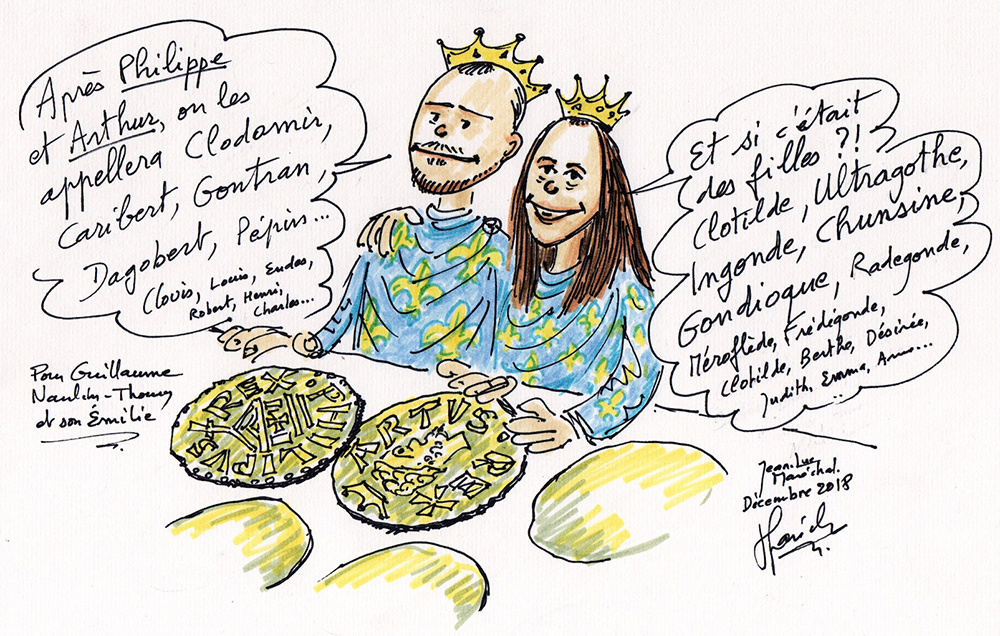 Après Philippe
et Arthur, on les
appellera Clodomir,
Caribert, Gontran,
Dagobert, Pépin...
Clovis, Louis, Eudes,
Robert, Henri,
Charles...
Et si c'était
des filles ?!
Clotilde, Ultragothe,
Ingonde, Chunsine,
Gondioque, Radegonde,
Méroflède, Frédégonde,
Clotilde, Berthe, Désirée,
Judith, Emma, Anne...
Pour Guillaume
et son Émilie
REX
ARTUS
Jean-Luc
Maréchal.
Décembre 2018